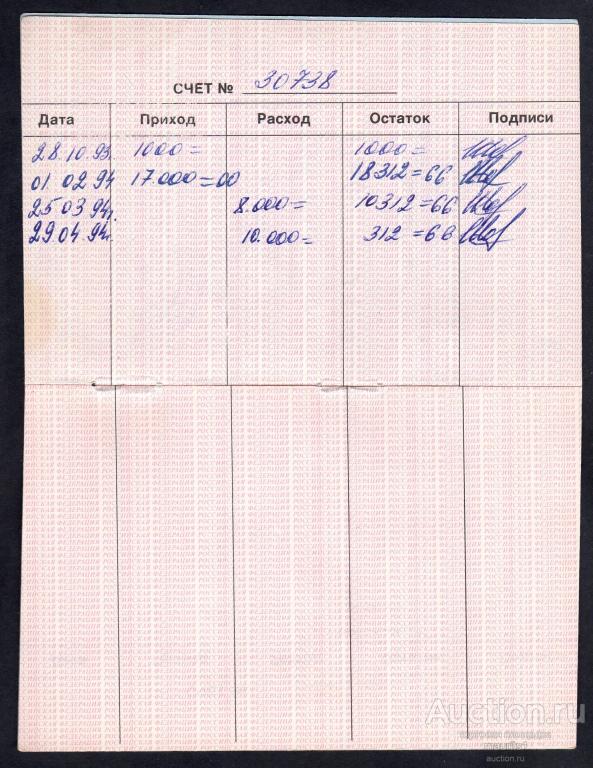 СЧЕТ № 30738
Дата Приход Расход Остаток Подписи
28.10.93. 1000= 1000=
01.02.94. 17.000=00 18312=66
25.03.94г. 8.000= 10312=66
29.04.94г. 10.000= 312=66
Auction.ru
auction.ru